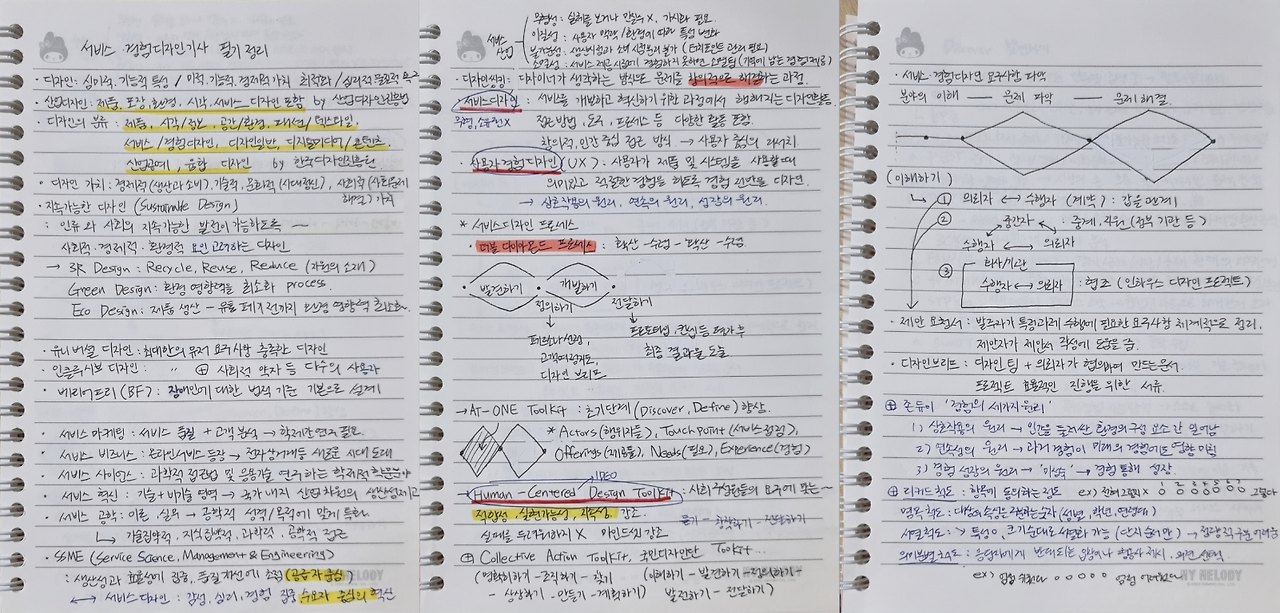 서비스·경험디자인기사 필기 정리
· 디자인: 심미적, 기능적 특성 / 미적, 기능적, 경제적 가치 최적화 / 심리적 물리적 욕구
· 산업디자인: 제품, 포장, 환경, 시각, 서비스 디자인 포함 by 산업디자인진흥법
· 디자인의 분류: 제품, 시각/정보, 공간/환경, 패션/텍스타일,
서비스/경험디자인, 디자인일반, 디지털미디어/콘텐츠,
산업공예, 융합 디자인 by 한국디자인진흥원
· 디자인 가치: 경제적(생산과 소비), 기능적, 문화적(시대정신), 사회적(사회문제
해결) 가치
· 지속가능한 디자인 (Sustainable Design)
: 인류 와 사회의 지속가능한 발전이 가능하도록 ~
사회적·경제적·환경적 요인 고려하는 디자인
→ 3R Design: Recycle, Reuse, Reduce (자원의 소재)
Green Design: 환경 영향력을 최소화 process.
Eco Design: 제품 생산 - 유통 폐기 전까지 환경 영향력 최소화.
· 유니버설 디자인: 최대한의 유저 요구사항 충족한 디자인
· 인클루시브 디자인: 〃 ⊕ 사회적 약자 등 다수의 사용자
· 배리어프리(BF): 장애인에 대한 법적 기준 기본으로 설계
· 서비스 마케팅: 서비스 품질 + 고객 분석 → 학제간 연구 필요.
· 서비스 비즈니스: 온라인서비스 등장 → 전자상거래등 새로운 시대 도래
· 서비스 사이언스: 과학적 접근법 및 응용기술 연구하는 학제적 학문분야
· 서비스 혁신: 기술+비기술 영역 → 국가 내지 산업차원의 생산성 제고
· 서비스 공학: 이론, 실무 → 공학적 성격 / 목적에 맞게 특화.
↳ 기술집약적, 지식집약적, 과학적, 공학적 접근
· SSME (Service Science, Management & Engineering)
: 생산성과 효율성에 집중, 품질 차원에 초점 (공급자 중심)
↔ 서비스디자인: 감성, 심리, 경험 집중 수요자 중심의 혁신
서비스 산업
무형성: 실체를 보거나 만질수 X, 가시화 필요.
이질성: 사용자 맥락/환경에 따라 특성 변화
불가분성: 생산시점과 소비 시점 분리 불가 (터치포인트 관리 필요)
소멸성: 서비스 제공 시점에 경험하지 못하면 소멸됨 (기억에 남는 경험 제공)
· 디자인씽킹: 디자이너가 생각하는 방식으로 문제를 창의적으로 해결하는 과정.
· 서비스디자인: 서비스를 개발하고 혁신하기 위한 과정에서 행해지는 디자인활동.
무형, 유무형 X 접근 방법, 도구, 프로세스 등 다양한 활동 포함.
창의적, 인간 중심 접근 방식 → 사용자 중심의 리서치
· 사용자 경험 디자인 (UX): 사용자가 제품 및 시스템을 사용할 때
의미있고 적절한 경험을 하도록 경험 전반을 디자인.
→ 상호작용의 원리, 연속의 원리, 성장의 원리.
* 서비스디자인 프로세스
· 더블 다이아몬드 프로세스: 확산 - 수렴 - 확산 - 수렴
발견하기 개발하기
정의하기 전달하기
페르소나 선정,
고객여정지도,
디자인 브리프
프로토타입, 컨셉 등 평가 후
최종 결과물 도출
→ AT-ONE Toolkit: 초기단계 (Discover, Define) 향상.
* Actors(행위자들), Touch Point (서비스접점),
Offerings (제공물), Needs(필요), Experience(경험)
IDEO
→ Human - Centered Design Toolkit: 사회 구성원들의 요구에 맞는 ~
적합성, 실현가능성, 지속성 강조. 듣기 - 창작하기 - 전달하기
실패를 두려워하지 X 마인드셋 강조
⊕ Collective Action Toolkit, 국민디자인단 Toolkit...
(명확하기 - 조직하기 - 찾기 (이해하기 - 발견하기 - 정의하기 -
- 상상하기 - 만들기 - 계획하기) 발전하기 - 전달하기)
· 서비스·경험디자인 요구사항 파악
분야의 이해 — 문제 파악 — 문제 해결.
(이해하기)
① 의뢰자 ↔ 수행자 (계약): 갑을 관계
② 중간자 : 중계, 지원 (접복 기관 등)
수행자 ↔ 의뢰자
③ 회사/기관
수행자 ↔ 의뢰자 : 협조 (인하우스 디자인 프로젝트)
· 제안 요청서: 발주자가 특정과제 수행에 필요한 요구사항 체계적으로 정리,
제안자가 제안서 작성에 도움을 줌.
· 디자인브리프: 디자인 팀 + 의뢰자가 협의하여 만드는 문서.
프로젝트 효율적인 진행을 위한 서류.
⊕ 존듀이 '경험의 세가지 원리'
1) 상호작용의 원리 → 인간을 둘러싼 환경의 구성 요소 간 일어남
2) 연속성의 원리 → 과거 경험이 미래의 경험에도 영향 미침
3) 경험 성장의 원리 → '미성숙' → 경험 통해 성장.
⊕ 리커드 척도: 항목에 동의하는 정도 ex) 전혀 그렇지 X 1 2 3 4 5 6 7 그렇다
명목 척도: 대상의 속성을 숫자 (성별, 학년, 연령대)
서열 척도: > 특성, 크기 순대로 서열화 가능 (단지 순서만)
의미분별 척도:
ex)
MY MELODY